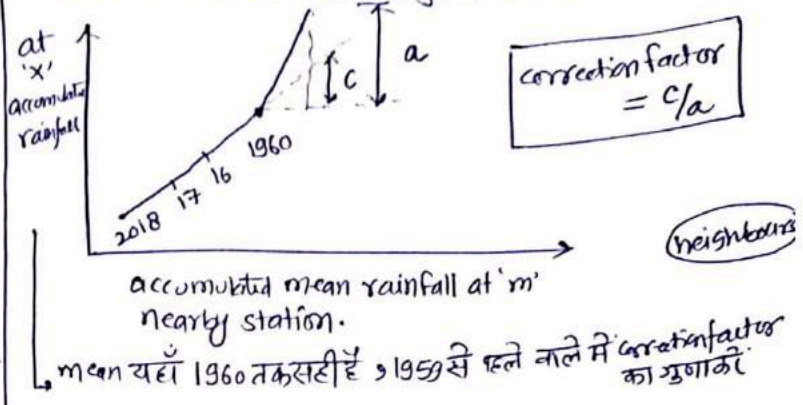 at
'x'
accumulated
rainfall
c
a
correction factor
= c/a
1960
16
17
2018
neighbours
accumulated mean rainfall at 'm'
nearby station.
mean यहाँ 1960 तक सही है, 1959 से पहले वाले में correctionfactor
का गुणा करें